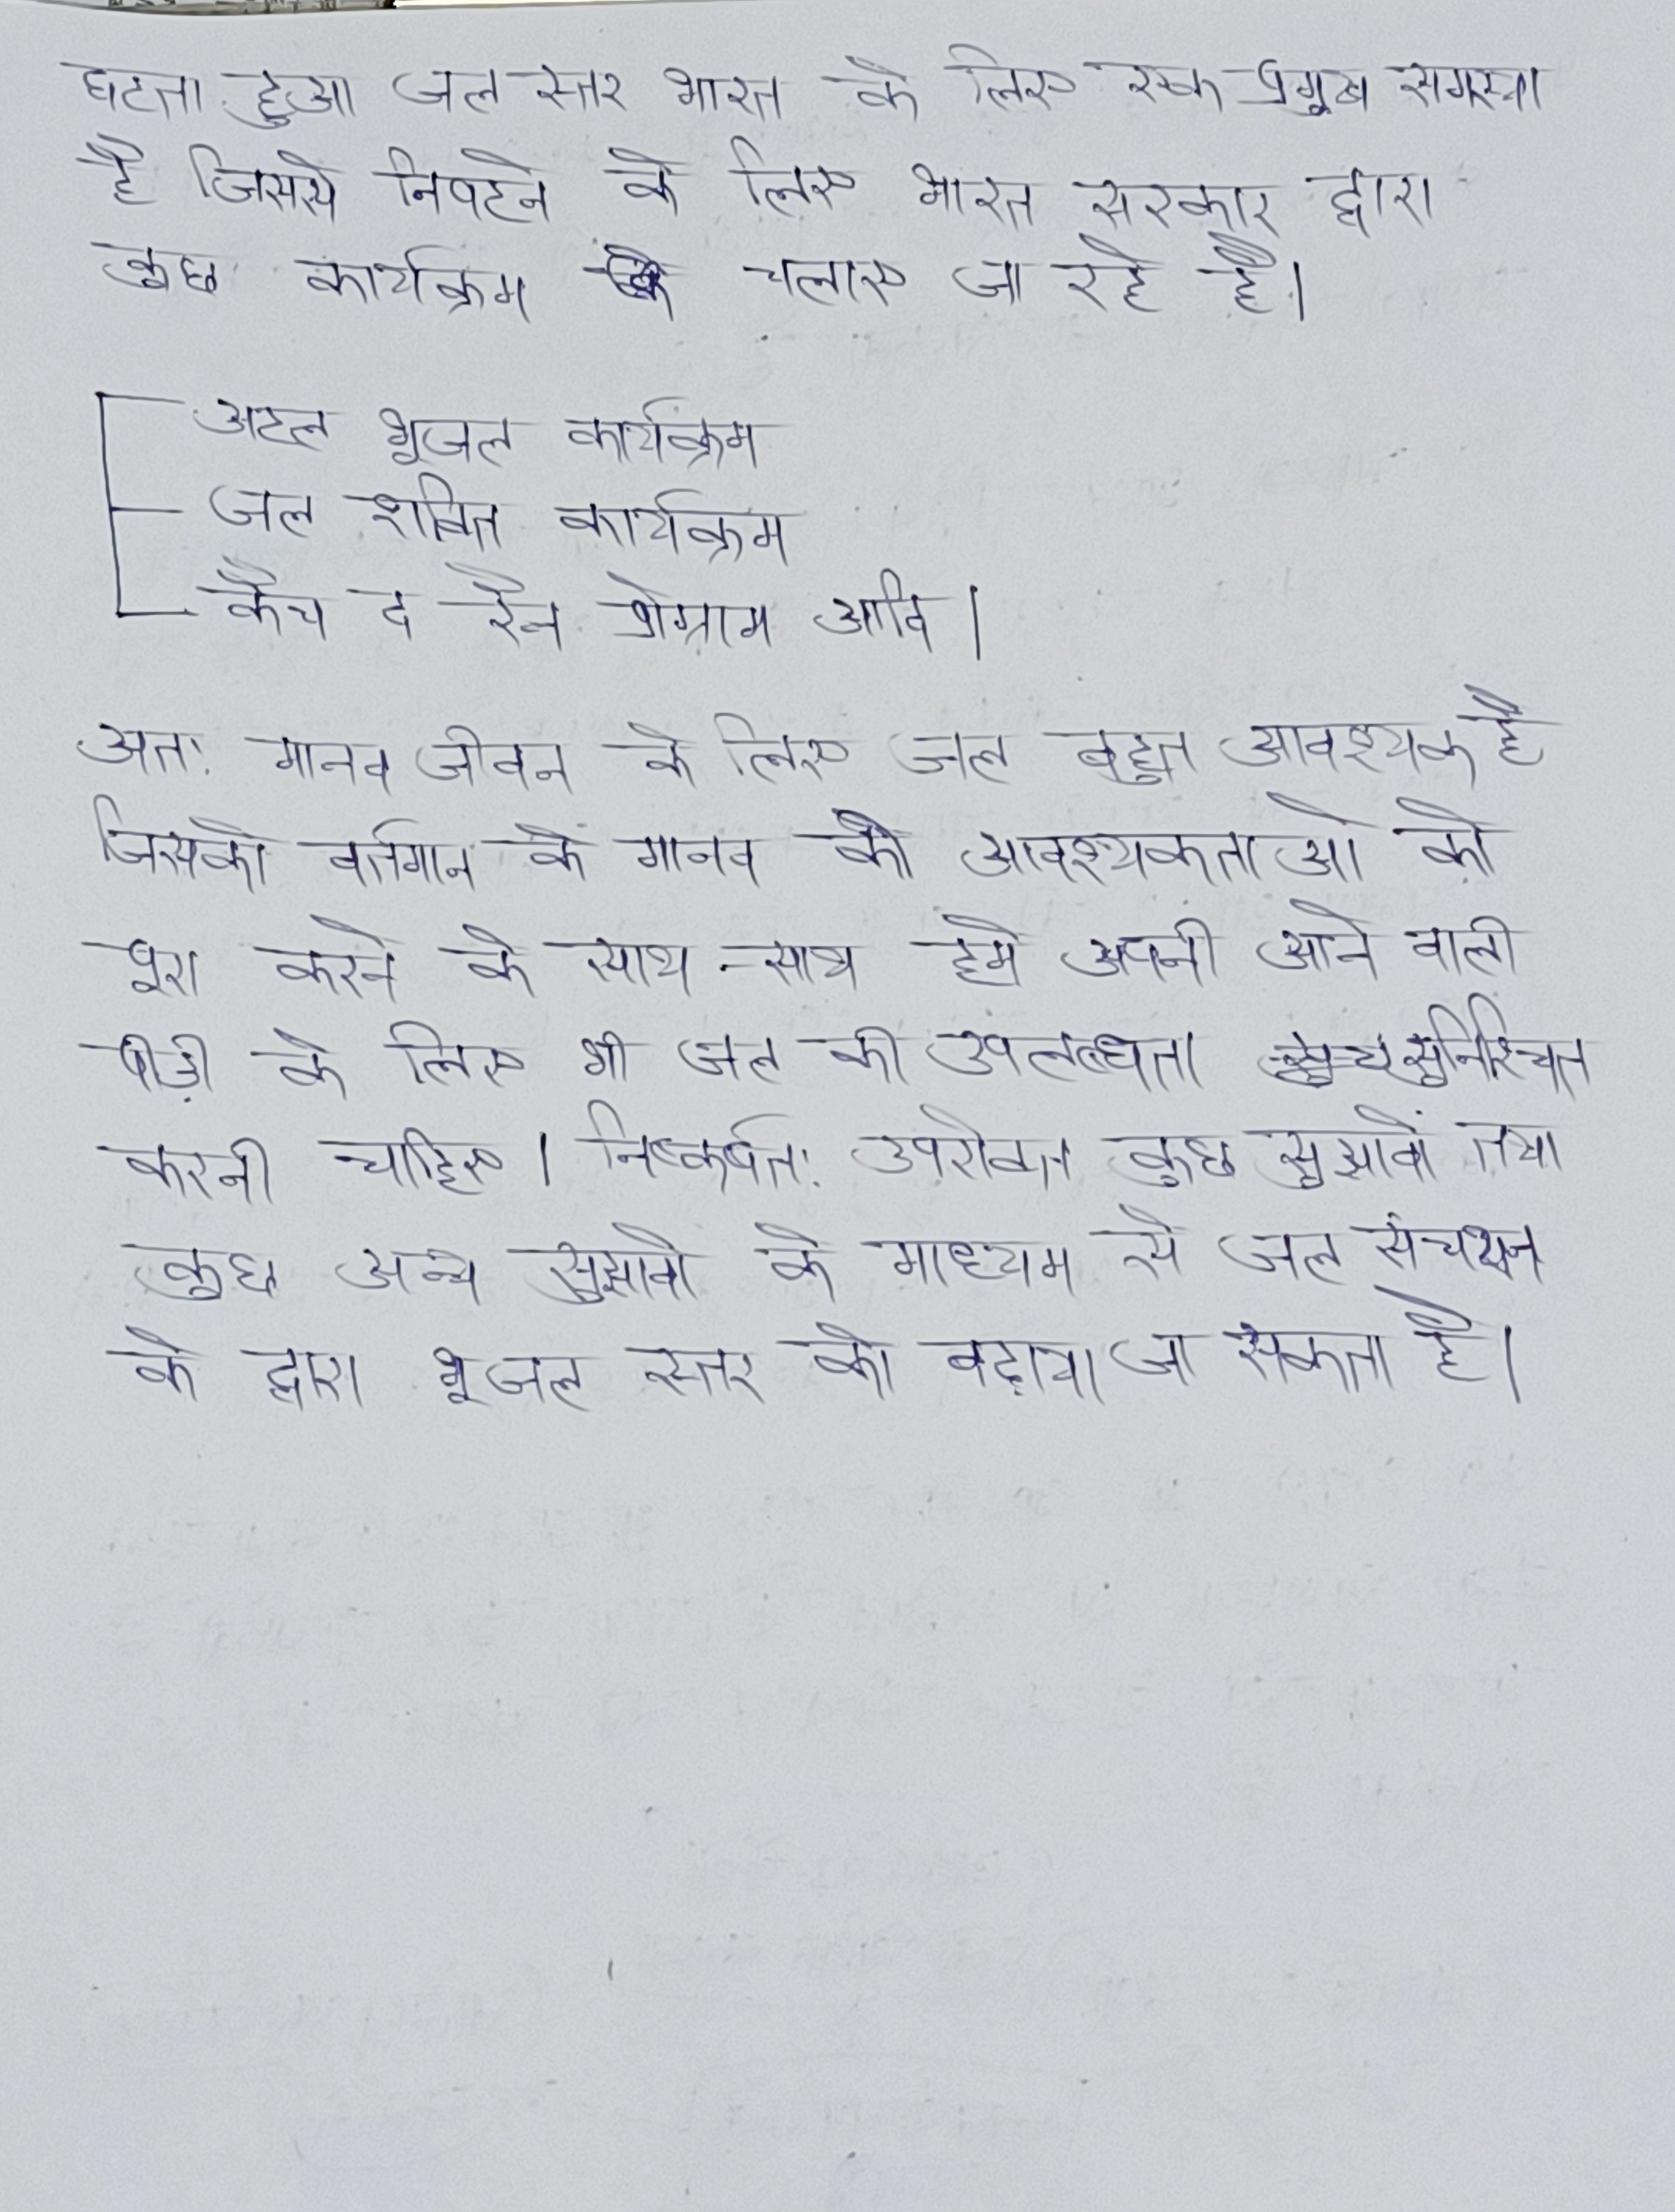 घटता हुआ जल स्तर भारत के लिए एक प्रमुख समस्या
है जिससे निपटने के लिए भारत सरकार द्वारा
कुछ कार्यक्रम चलाए जा रहे है।
अटल भूजल कार्यक्रम
जल शक्ति कार्यक्रम
कैच द रैन प्रोग्राम आदि।
अतः मानव जीवन के लिए जल बहुत आवश्यक है
जिसको वर्तमान के मानव की आवश्यकताओं को
पूरा करने के साथ-साथ हमे अपनी आने वाली
पीड़ी के लिए भी जल की उपलब्धता सुनिश्चित
करनी चाहिए। निष्कर्षतः उपरोक्त कुछ सुझावों तथा
कुछ अन्य सुझावो के माध्यम से जल संचयन
के द्वारा भूजल स्तर को बढ़ाया जा सकता है।